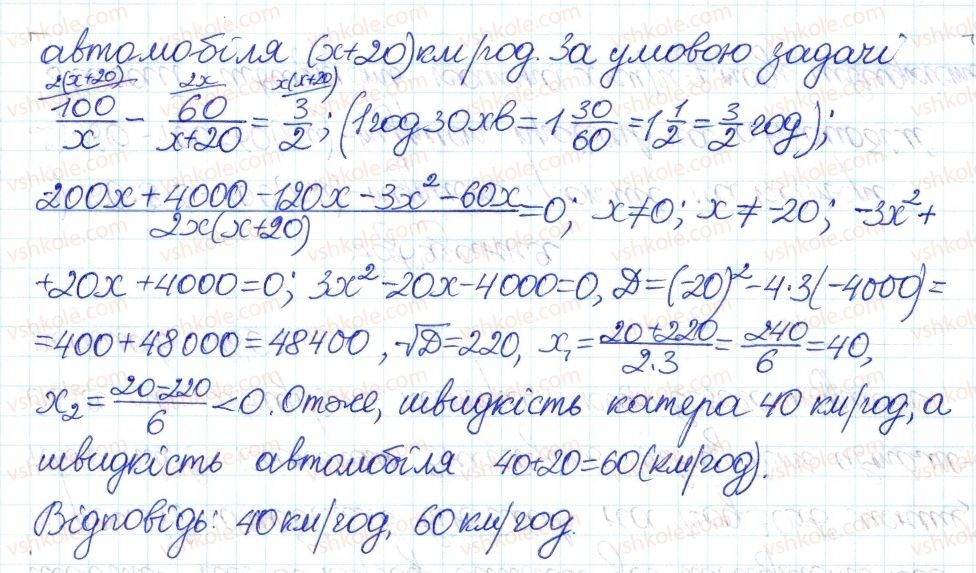 автомобіля (x+20)км/год. За умовою задачі
2(x+20) 2x x(x+20)
100/x - 60/(x+20) = 3/2; (1год30хв = 1 30/60 = 1 1/2 = 3/2 год);
(200x+4000-120x-3x²-60x)/(2x(x+20)) = 0; x≠0; x≠-20; -3x²+
+20x+4000=0; 3x²-20x-4000=0, Д=(-20)²-4·3(-4000)=
=400+48000=48400, √Д=220, x₁=(20+220)/(2·3)=240/6=40,
x₂=(20-220)/6<0. Отже, швидкість катера 40 км/год, а
швидкість автомобіля 40+20=60(км/год).
Відповідь: 40км/год, 60км/год.